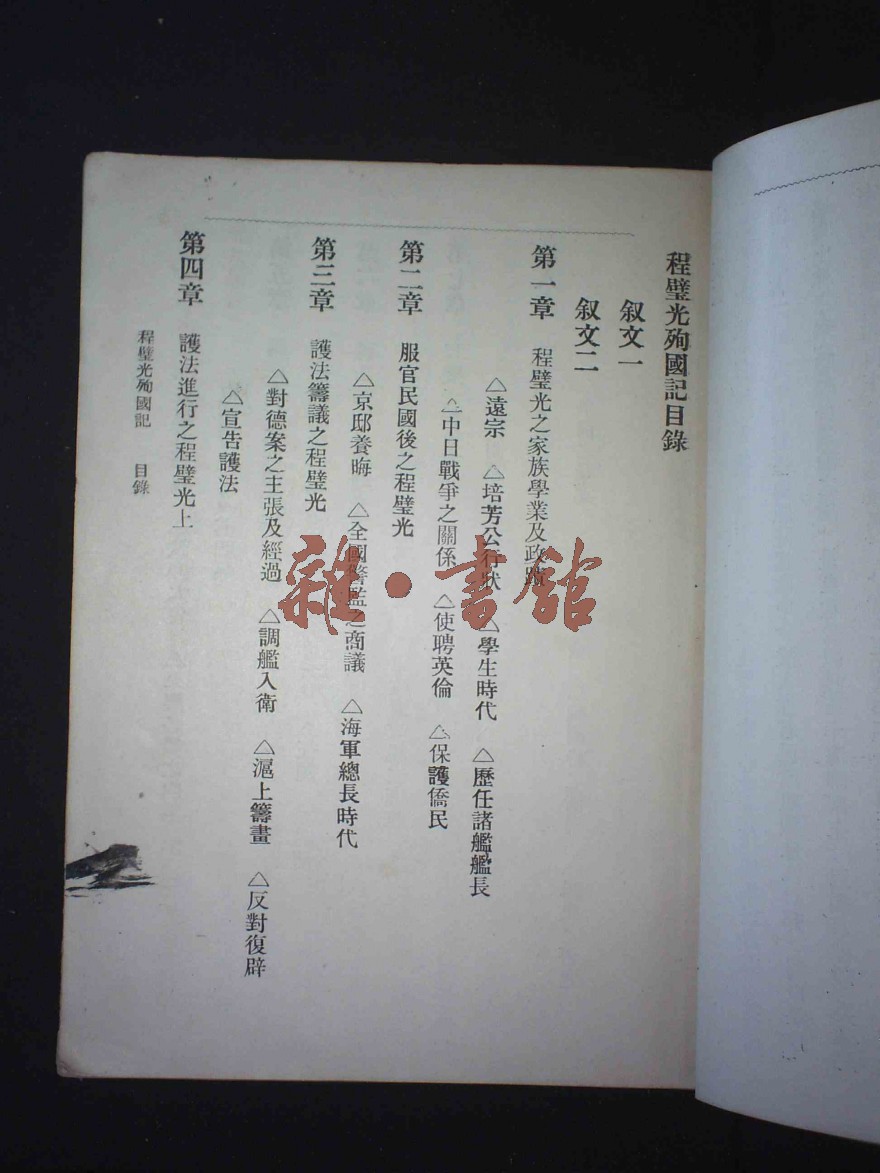 程璧光殉國記目錄
敘文一
敘文二
第一章 程璧光之家族學業及政蹟
△遠宗 △培芳公行狀 △學生時代 △歷任諸艦艦長
△中日戰爭之關係 △使聘英倫 △保護僑民
第二章 服官民國後之程璧光
△京邸養晦 △全國警監之商議 △海軍總長時代
第三章 護法籌議之程璧光
△對德案之主張及經過 △調艦入衛 △滬上籌畫 △反對復辟
△宣告護法
第四章 護法進行之程璧光上
程璧光殉國記 目錄
雜·書館